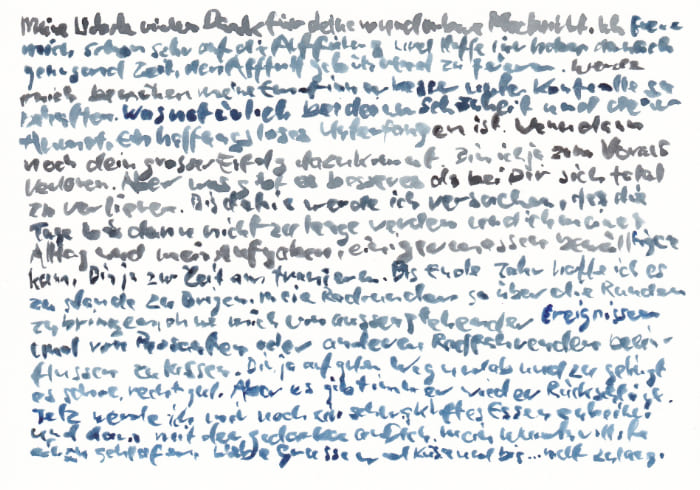 Meine Liebste vielen Dank für deine wunderbare Nachricht. Ich freue
mich schon sehr auf die Aufführung und hoffe wir haben danach
genügend Zeit, den Auftritt gebührend zu feiern. werde
mich bemühen meine Emotionen besser unter Kontrolle zu
behalten. Was natürlich bei deiner Schönheit und deiner
Anmut, ein hoffnungsloses Unterfangen ist. Wenn dann
noch dein grosser Erfolg dazukommt. Bin ich ja zum Voraus
verloren. Aber was gibt es besseres als bei Dir sich total
zu verlieren. Bis dahin werde ich versuchen, das die
Tage bis dann nicht zu lange werden und ich meinen
Alltag und mein Aufgaben, einigermassen bewältigen
kann. Bin ja zur Zeit am trainieren. Bis Ende Jahr hoffe ich es
zu stande zu bringen, meine Radrunden so über die Runden
zu bringen, ohne mich von aussen stehender Ereignissen
und von Passanten oder anderen Radfahrenden beein-
flussen zu lassen. Bin ja auf guten Weg und ab und zu gelingt
es schon recht gut. Aber es gibt immer wieder Rückschläge.
Jetz werde ich mir noch ein schmackhaftes Essen zubereiten
und dann mit den gedanken an Dich, mein Wunsch
einzuschlafen. Liebe Grüsse und Küsse und bis... nicht zu lang.